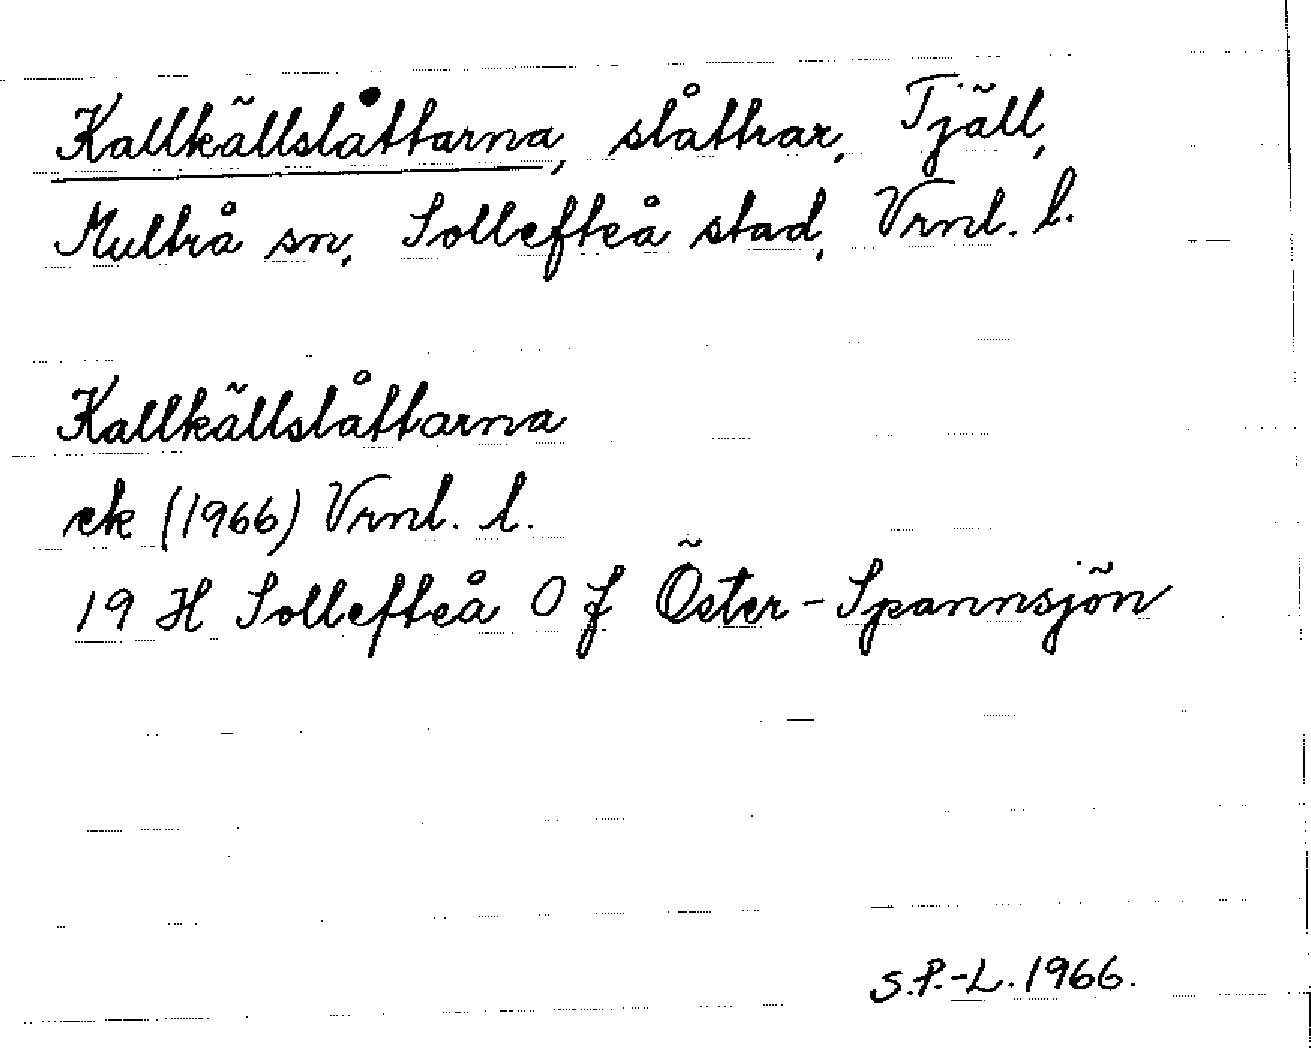 Kallkällslåttarna, slåttrar, Tjäll,
Multrå sn, Sollefteå stad, Vrnl. l.
Kallkällslåttarna
ek (1966) Vrnl. l.
19 H Sollefteå 0 f Öster-Spannsjön
S.P.-L. 1966.